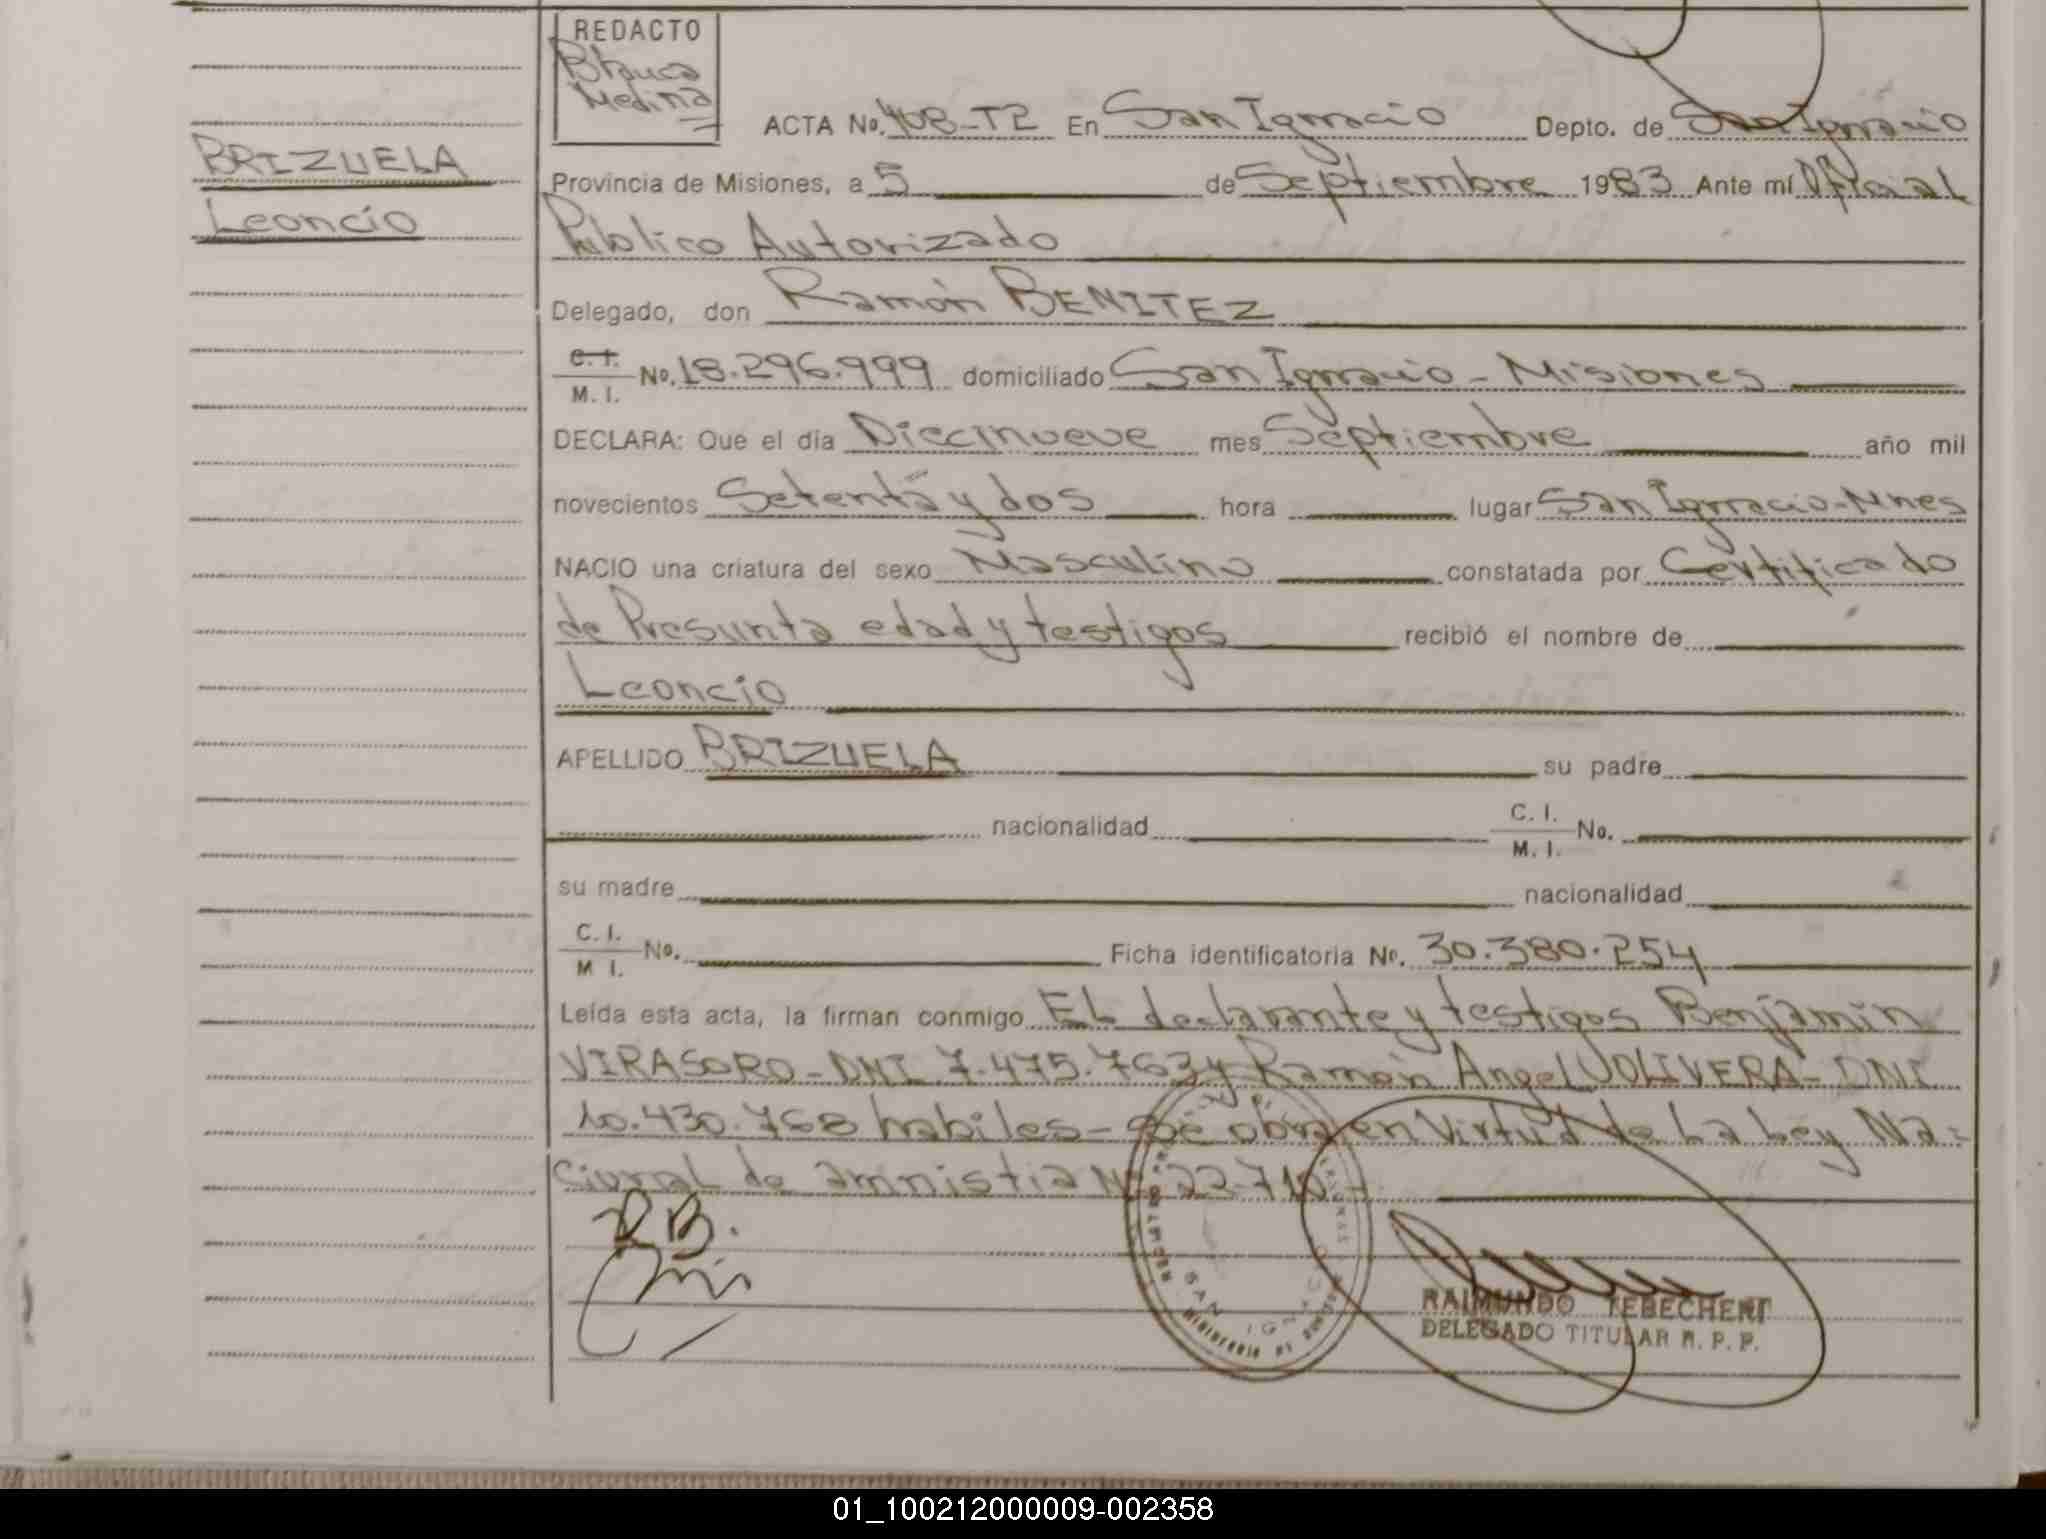 REDACTO
Blanca
Medina
ACTA No. 408-T2 En San Ignacio Depto. de San Ignacio
BRIZUELA
Leoncio
Provincia de Misiones, a 5 de Septiembre 1983 Ante mí Oficial
Público Autorizado
Delegado, don Ramón BENITEZ
C. I.
M. I. No. 18.296.999 domiciliado San Ignacio - Misiones
DECLARA: Que el día Diecinueve mes Septiembre año mil
novecientos Setenta y dos hora lugar San Ignacio-Mnes
NACIO una criatura del sexo Masculino constatada por Certificado
de Presunta edad y testigos recibió el nombre de
Leoncio
APELLIDO BRIZUELA su padre
nacionalidad C. I.
M. I. No.
su madre nacionalidad
C. I.
M I. No. Ficha identificatoria No. 30.380.254
Leída esta acta, la firman conmigo EL declarante y testigos Benjamín
VIRASORO - DNI 7.475.763 y Ramón Angel OLIVERA - DNI
10.430.768 habiles - Se obra en Virtud de La Ley Na-
cional de amnistia Nº 22.710 -
R B.
SAN IGNACIO
RAIMUNDO TEBECHERI
DELEGADO TITULAR R. P. P.
01_100212000009-002358